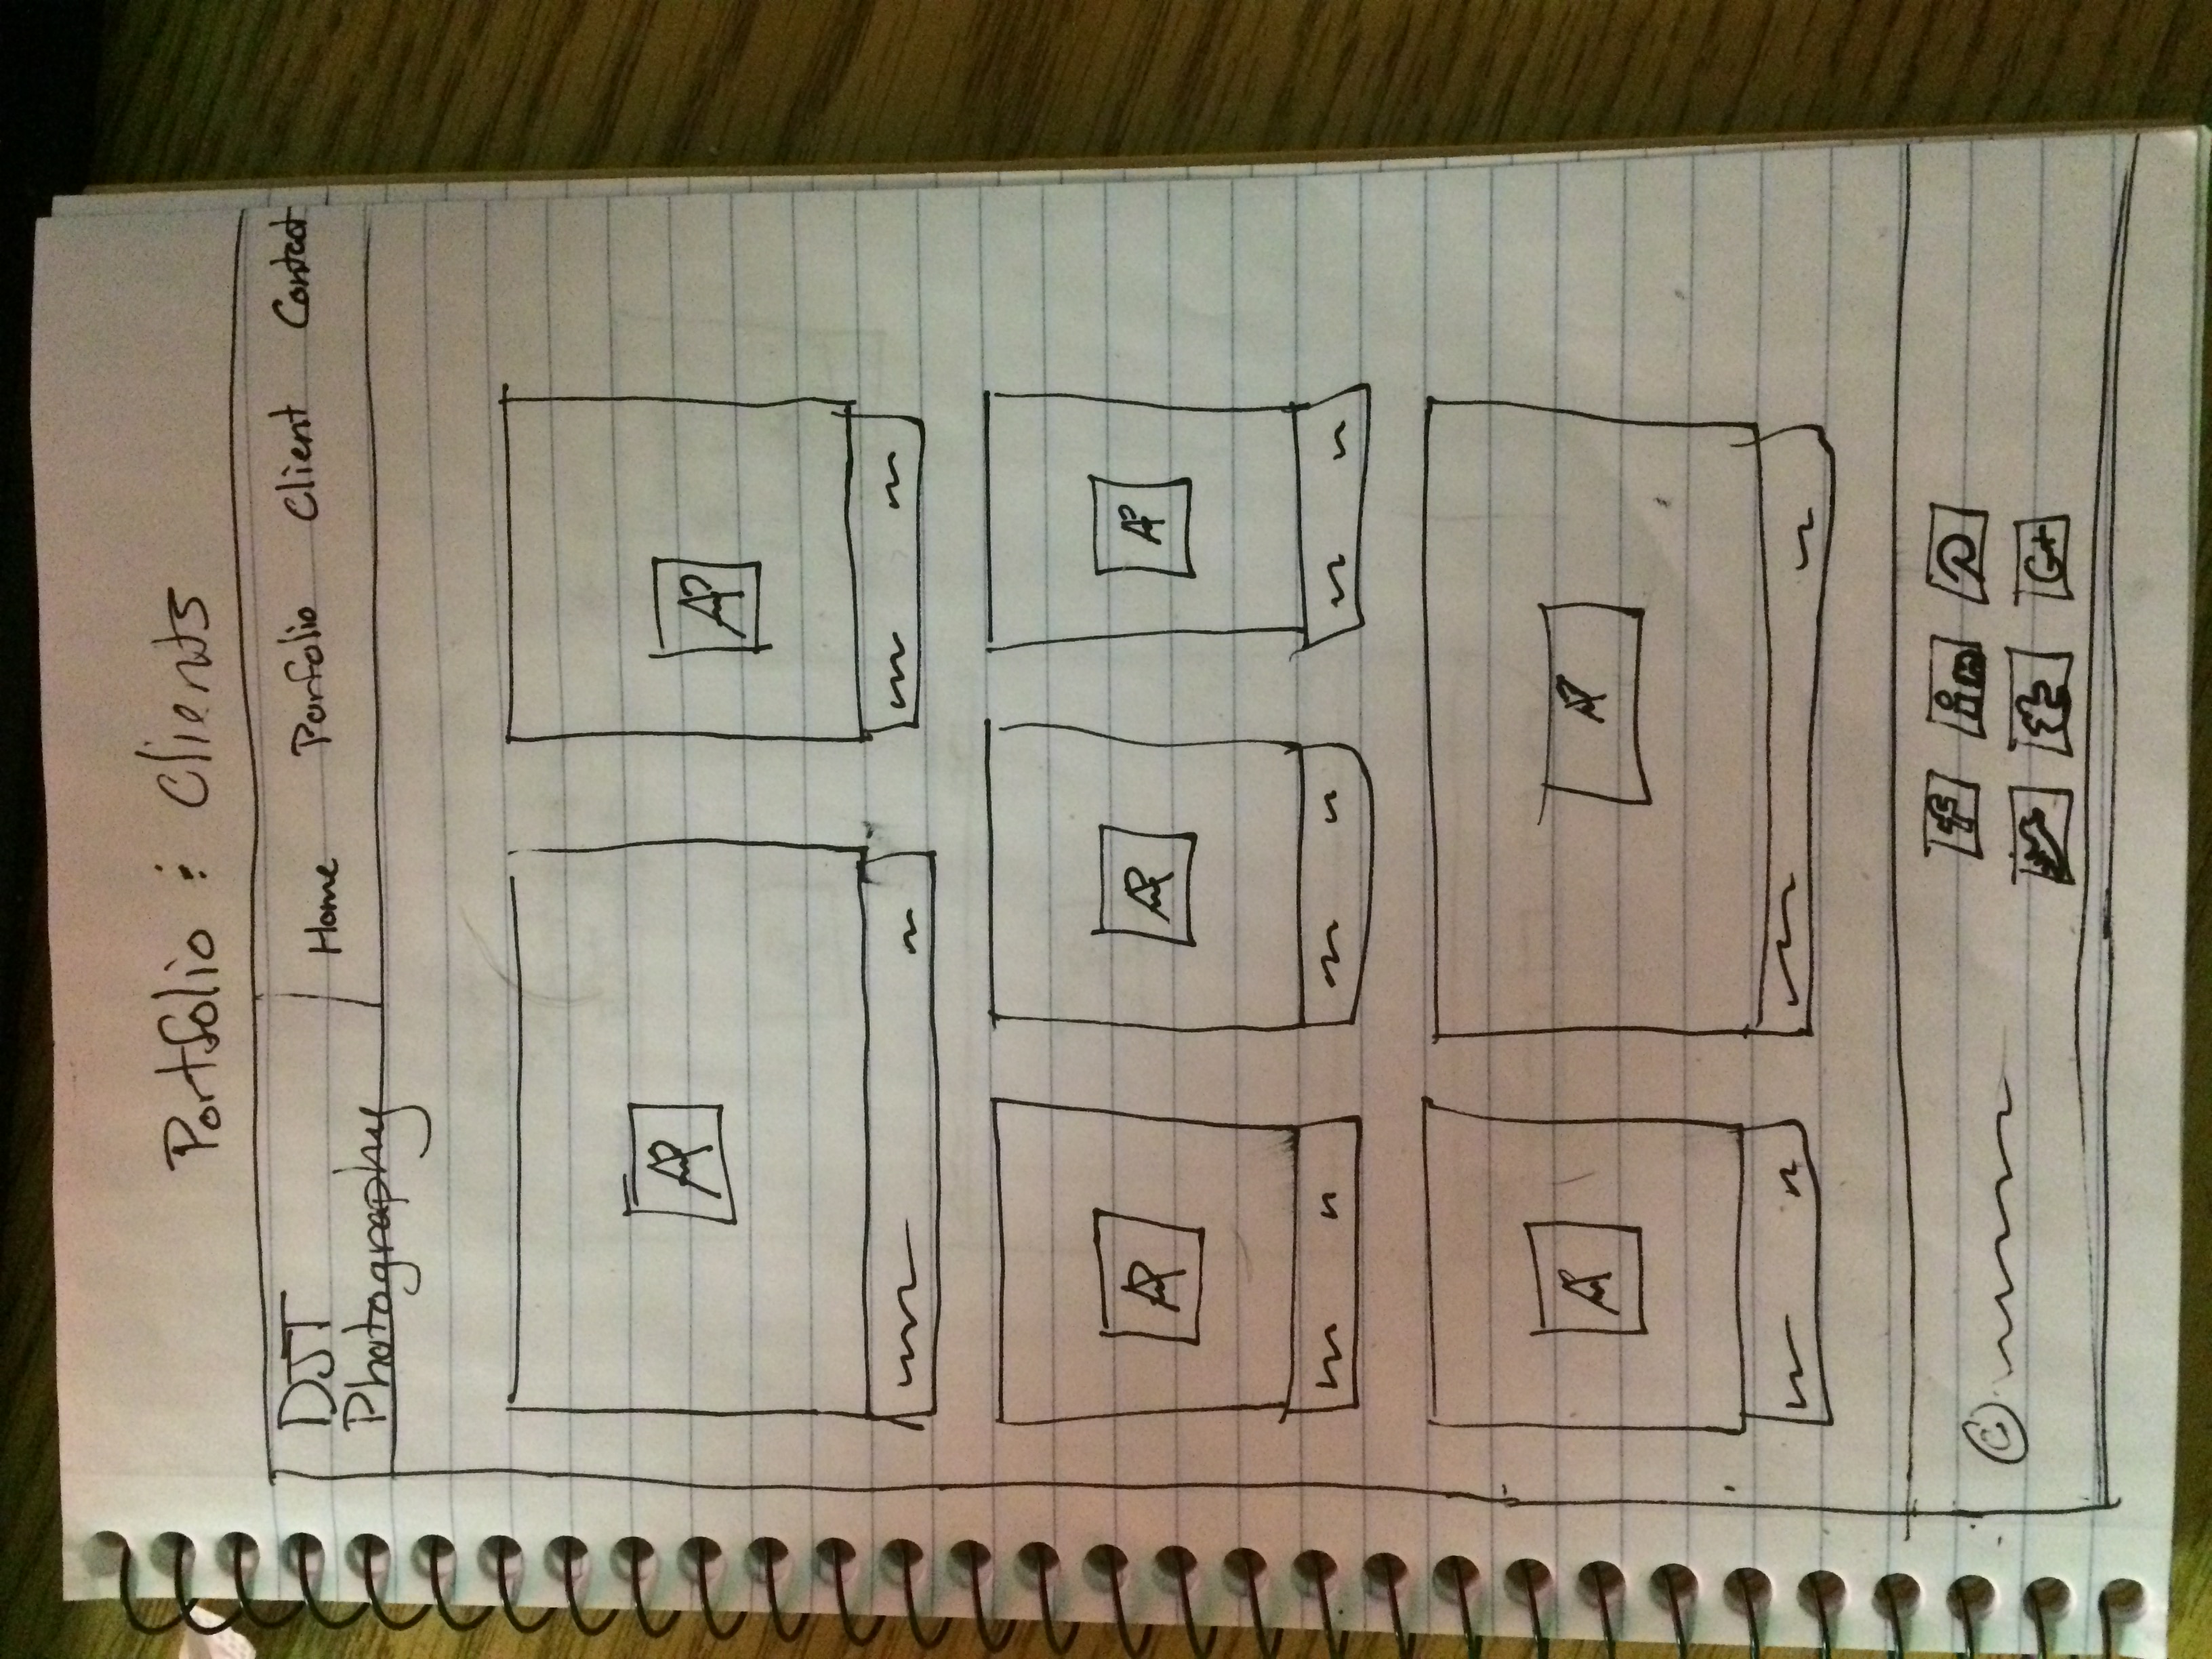 Portfolio : Clients
DJT
Photography
Home Porfolio Client Contact
AP
AP
AP
AP
AP
A
AP
©
f in P
t G+